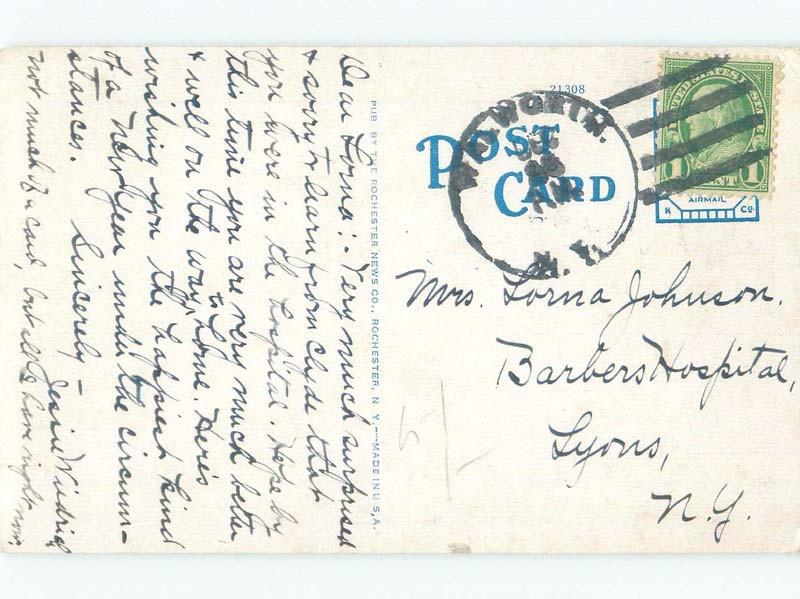 Dear Lorna:- Very much surprised
& sorry to learn from Clyde that
you were in the hospital. Hope by
this time you are very much better
& well on the way to home. Here's
wishing you the happiest kind
of a New Year under the circum-
stances. Sincerely - Jessie
not much of a card, but all I have right now.
PUB. BY THE ROCHESTER NEWS CO., ROCHESTER, N. Y.—MADE IN U.S.A.
21308
POST
CARD
WALWORTH.
N.Y.
UNITED STATES POSTAGE
1 CENT 1
AIRMAIL
K Co.
Mrs. Lorna Johnson.
Barbers Hospital,
Lyons,
N.Y.